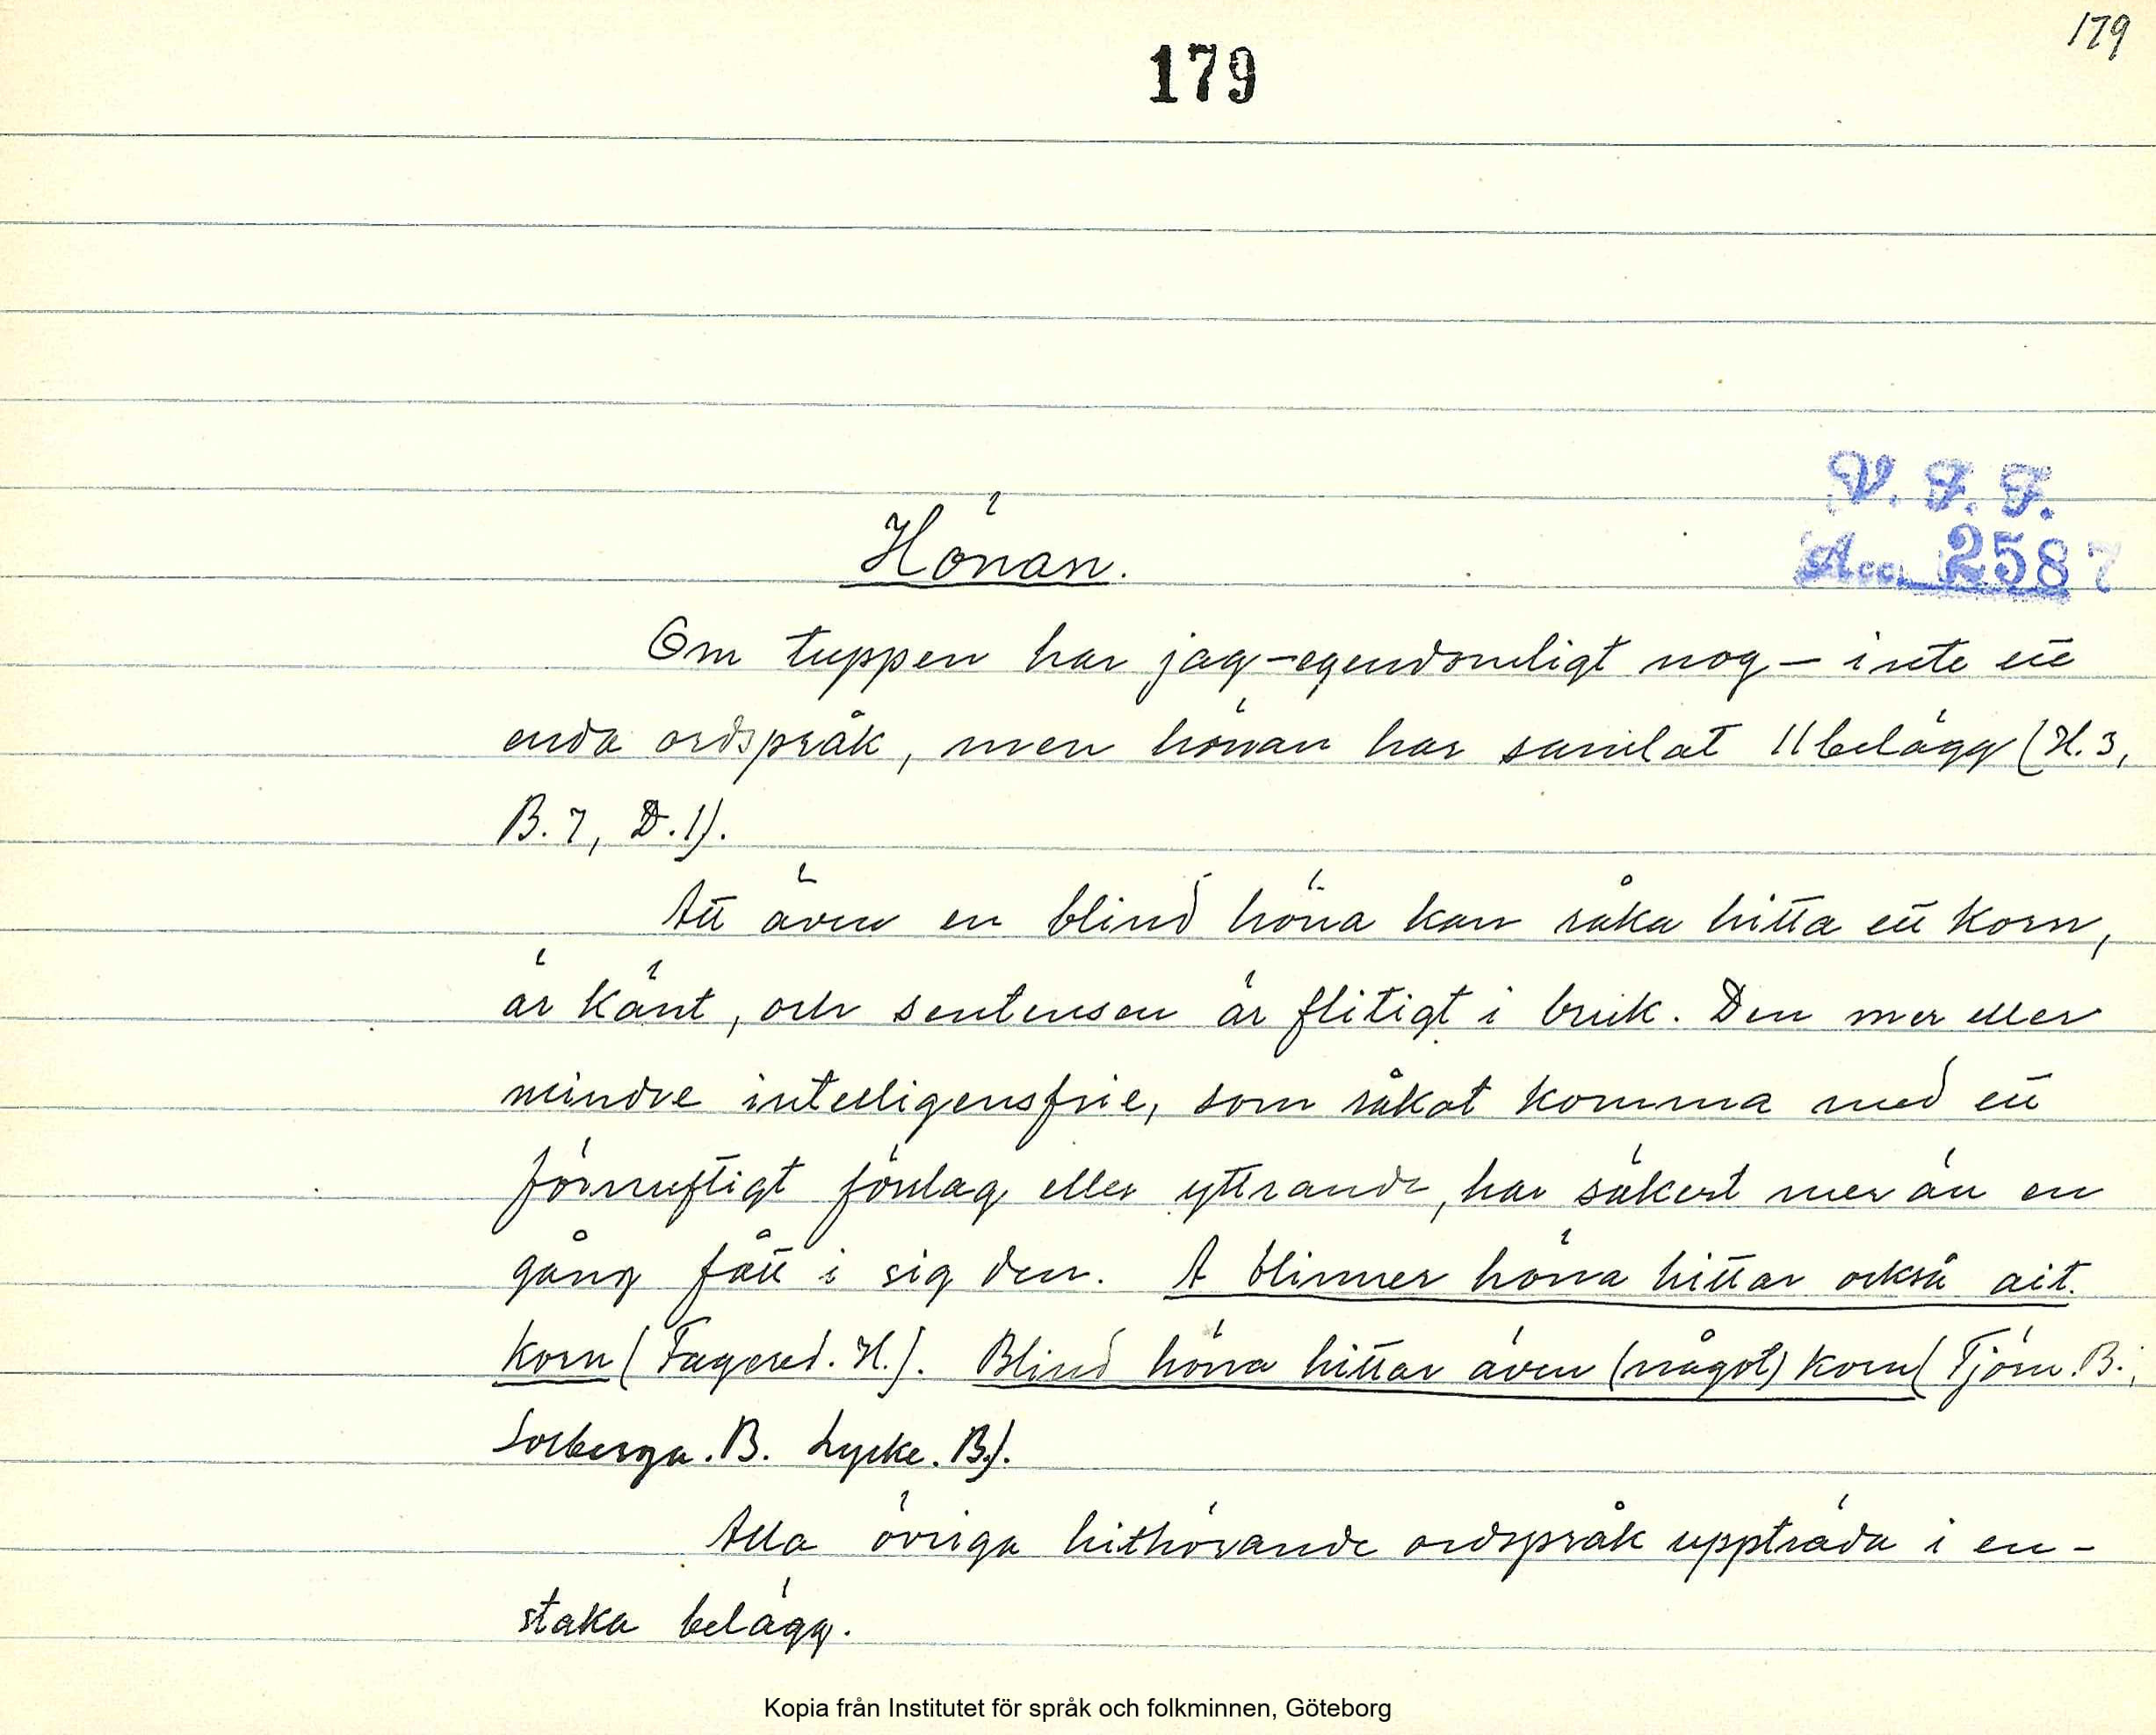 179
179
V. F. F.
Acc. 2587
Hönan.
Om tuppen har jag – egendomligt nog – inte ett
enda ordspråk, men hönan har samlat 11 belägg (H. 3,
B. 7, D. 1).
Att även en blind höna kan råka hitta ett korn,
är känt, och sentensen är flitigt i bruk. Den mer eller
mindre intelligensfrie, som råkat komma med ett
förnuftigt förslag eller yttrande, har säkert mer än en
gång fått i sig den. A blinner höna hittar också ait
korn (Fagered. H.). Blind höna hittar även (något) korn (Tjörn. B.;
Solberga. B. Lycke. B.).
Alla övriga hithörande ordspråk uppträda i en-
staka belägg.
Kopia från Institutet för språk och folkminnen, Göteborg